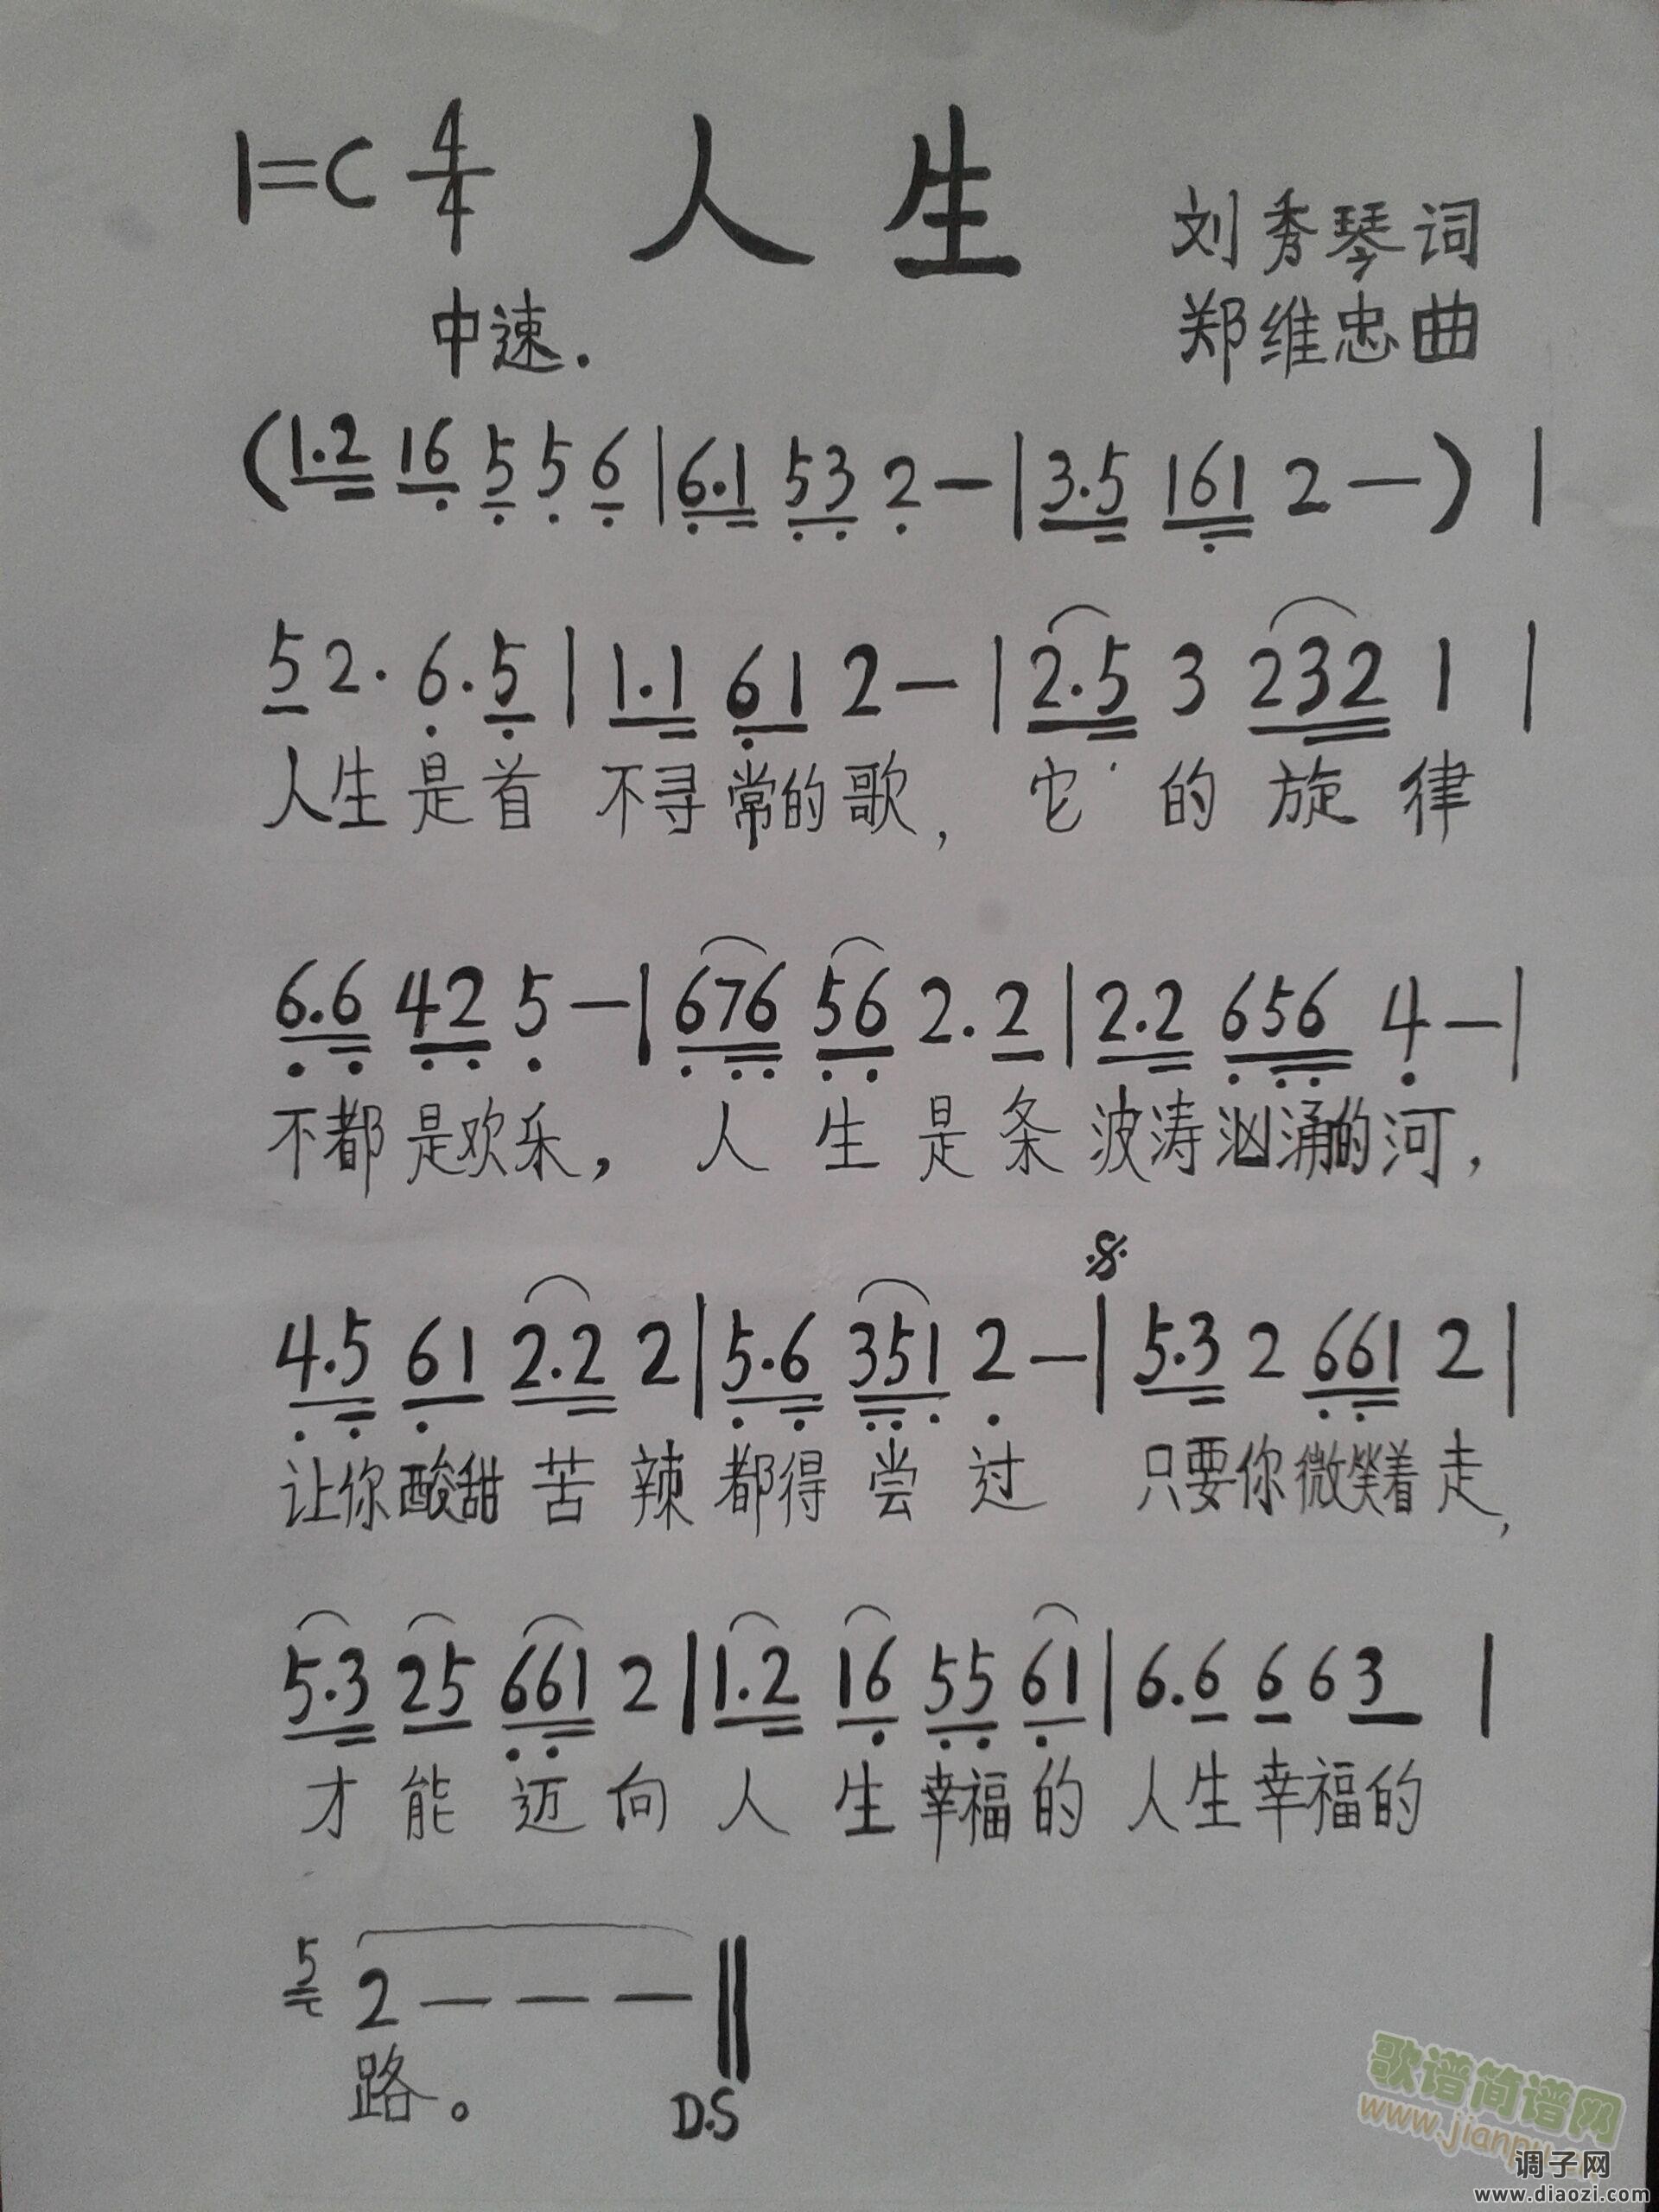 1=C 4/4 人生
刘秀琴词
中速.
郑维忠曲
(1.2 16 5 5 6|6.1 53 2 —|3.5 161 2 —) |
5 2. 6.5|1.1 61 2 —|2.5 3 232 1 |
人生是首 不寻常的歌, 它 的 旋 律
6.6 42 5 —|676 56 2.2|2.2 656 4 —|
不都是欢乐, 人 生 是 条 波涛汹涌的河,
𝄋
4.5 61 2.2 2|5.6 351 2 —|5.3 2 661 2|
让你酸甜 苦 辣 都得 尝 过 只要你微笑着走,
5.3 25 661 2|1.2 16 55 61|6.6 6 6 3 |
才 能 迈 向 人 生幸福的 人生幸福的
5 2 — — — ‖
路。 D.S
歌谱简谱网
www.jianpu
调子网
www.diaozi.com